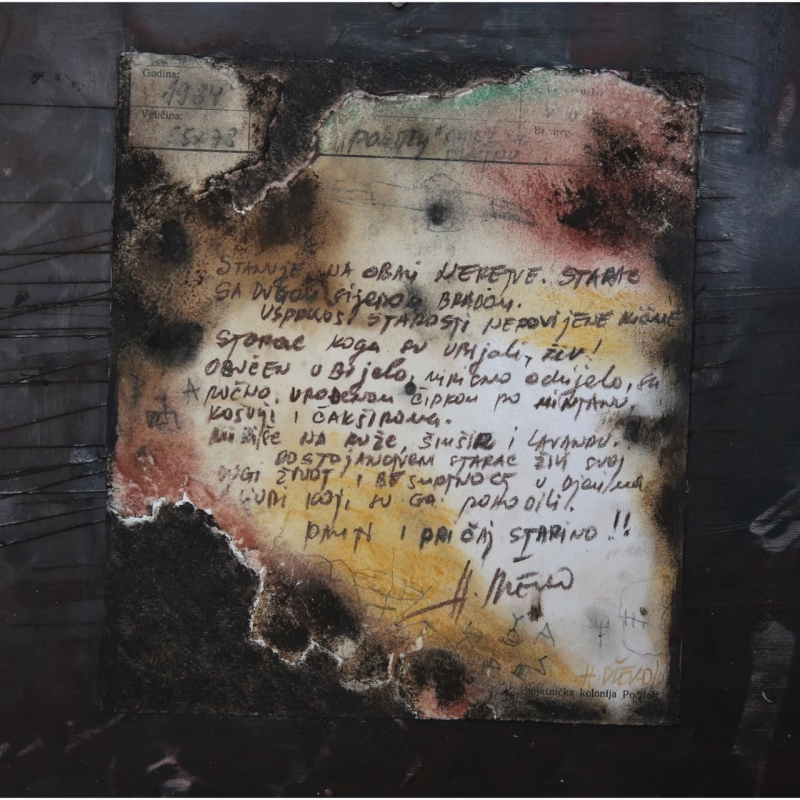 Godina:
1984
Veličina:
55x78
Br. neg.
STANUJE NA OBALI NERETVE. STARAC
SA DUGOM BIJELOM BRADOM.
USPRKOS STAROSTI NEPOVIJENE KIČME
STARAC KOGA SU UBIJALI, ŽIV!
OBUČEN U BIJELO, MIRISNO ODIJELO, SA
RUČNO, URAĐENOM ČIPKOM PO MINTANU,
KOŠULJI I ČAKŠIRAMA.
MIRIŠE NA RUŽE, ŠIMŠIR I LAVANDU.
DOSTOJANSTVENI STARAC ŽIVI SVOJ
DUGI ŽIVOT I BESMRTNOST U DJELIMA
LJUDI KOJI SU GA POHODILI.
PAMTI I PRIČAJ STARINO!!
H. DŽEVKO
H. DŽEVKO
Umjetnička kolonija Počitelj